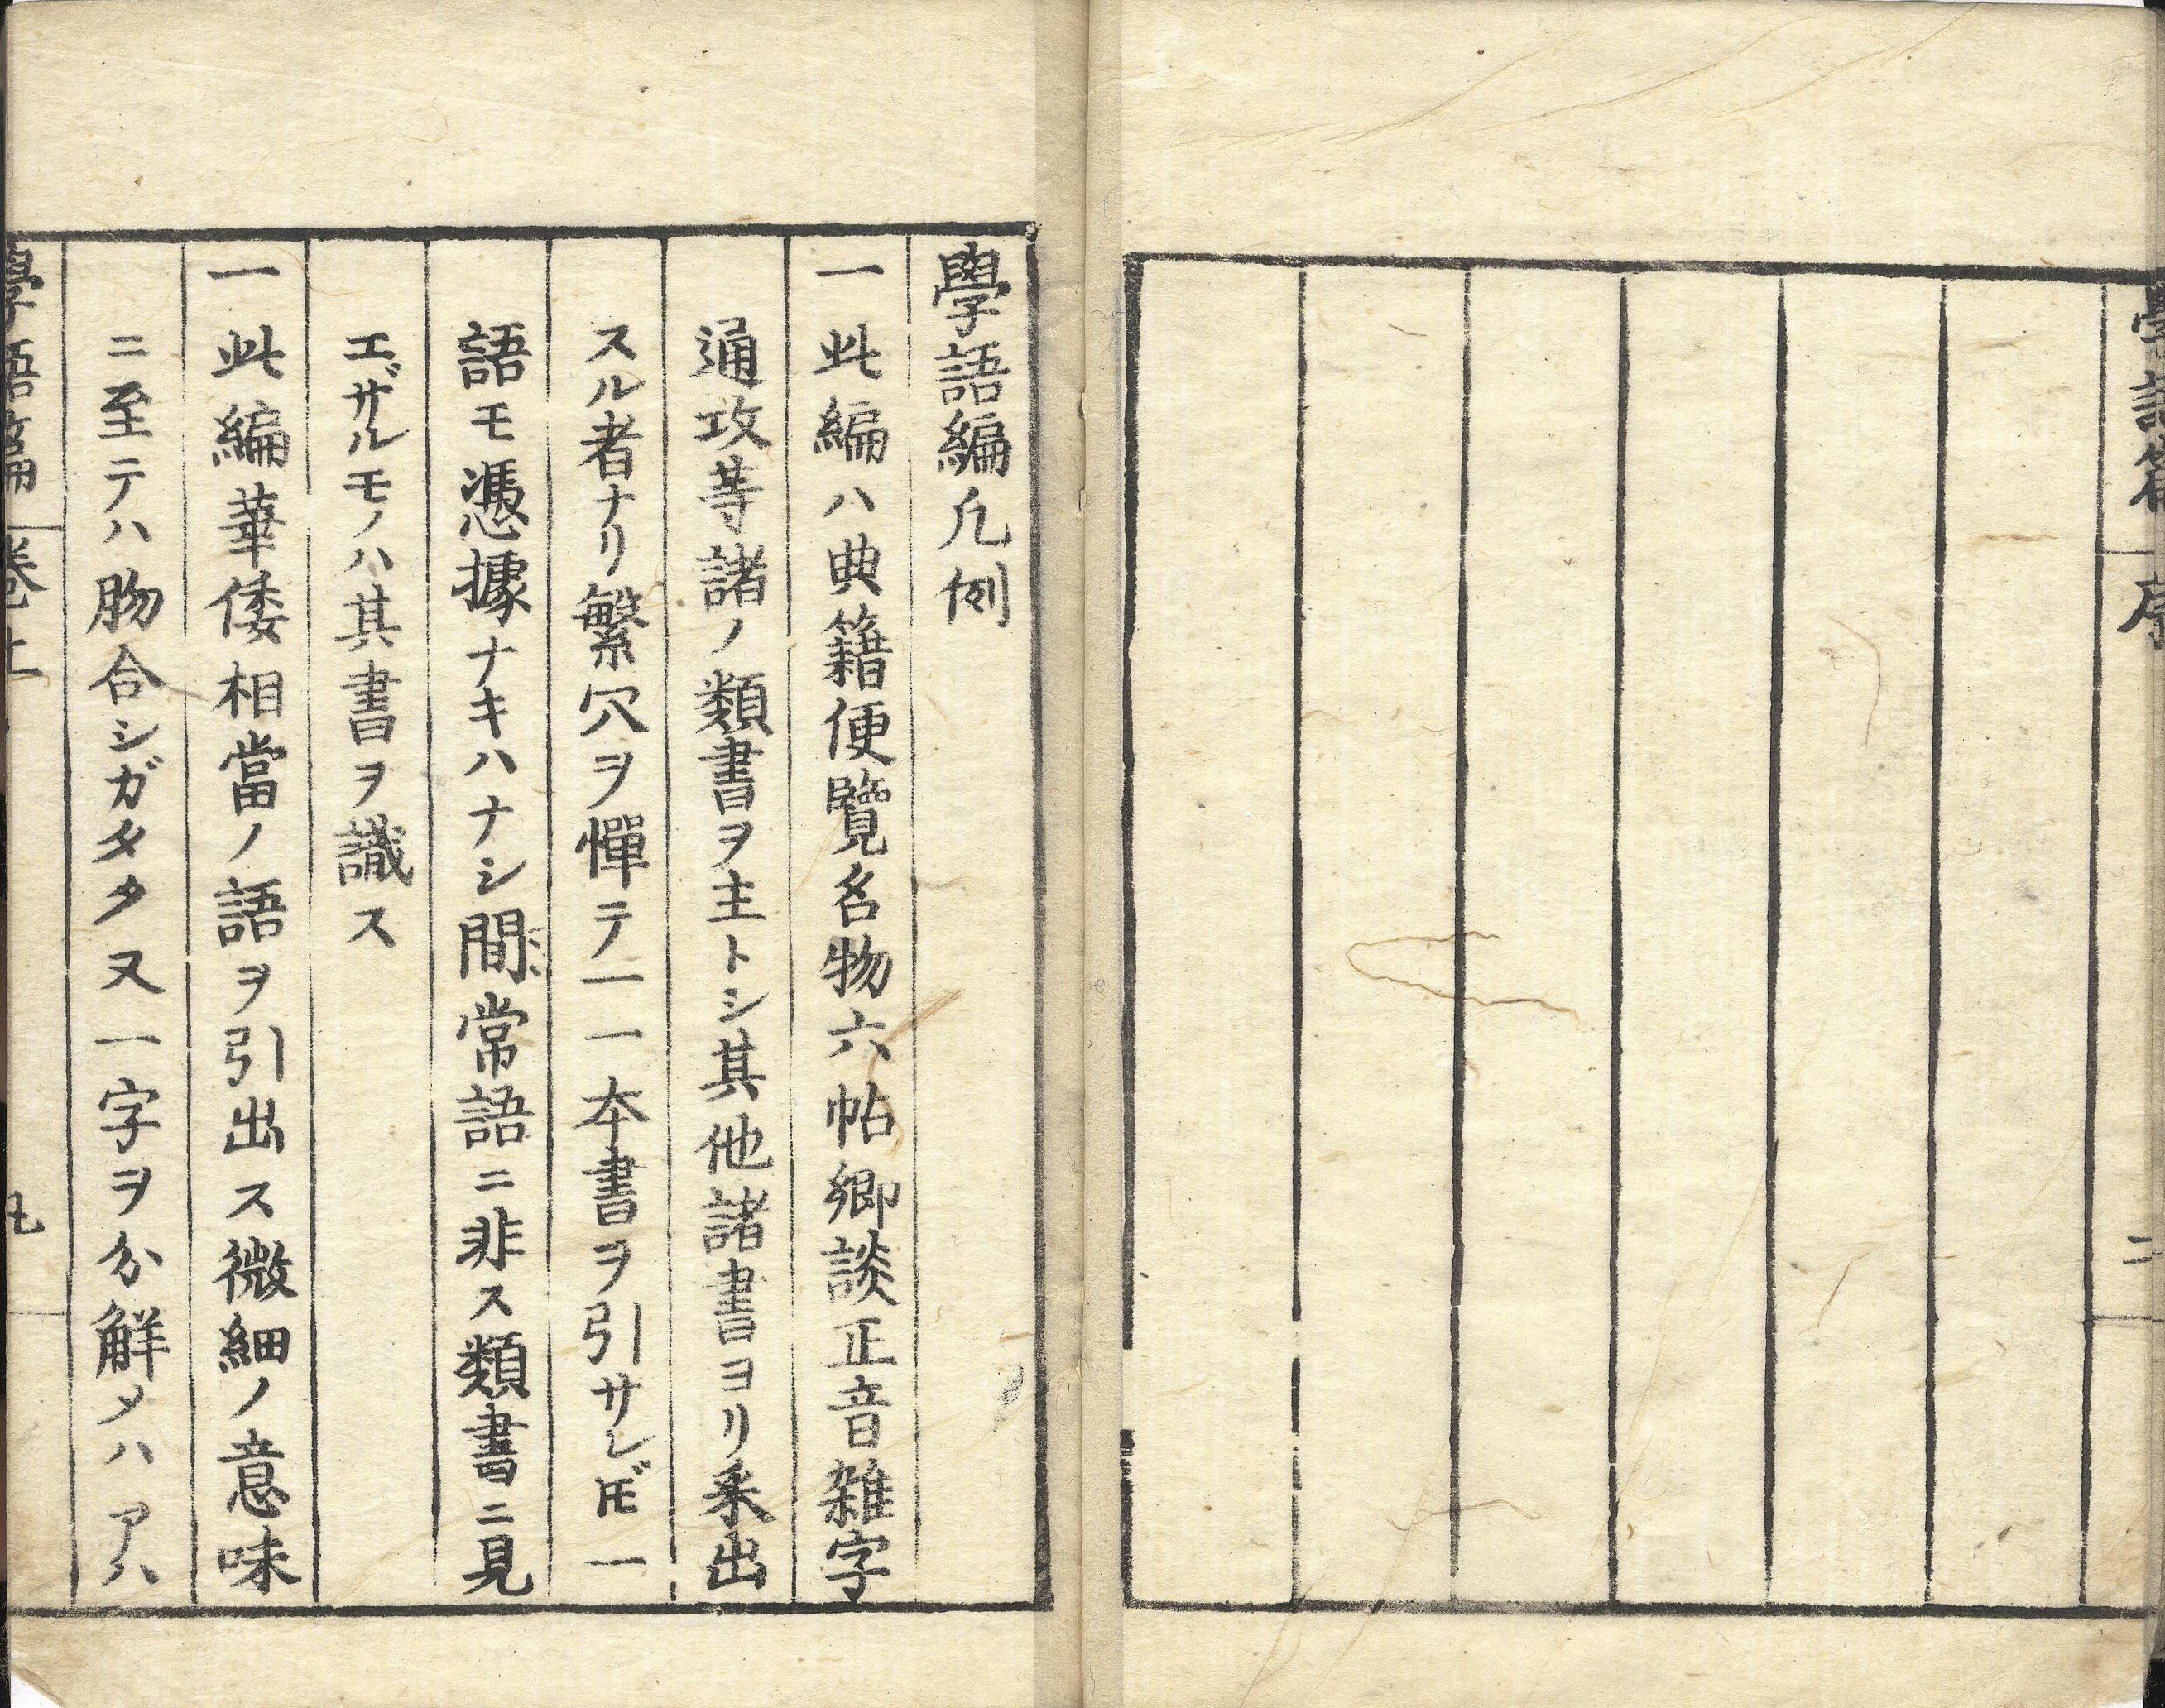 學語篇
序
二
學語編凡例
一此編ハ典籍便覽名物六帖鄉談正音雑字
通攻等諸ノ類書ヲ主トシ其他諸書ヨリ采出
スル者ナリ繁冗ヲ憚テ一一本書ヲ引サレ𪜈一
語モ憑據ナキハナシ間常語ニ非ス類書ニ見
エザルモノハ其書ヲ識ス
一此編華倭相當ノ語ヲ引出ス微細ノ意味
ニ至テハ脗合シガタタタ又一字ヲ分解メハアハ
學語篇
卷上
凡